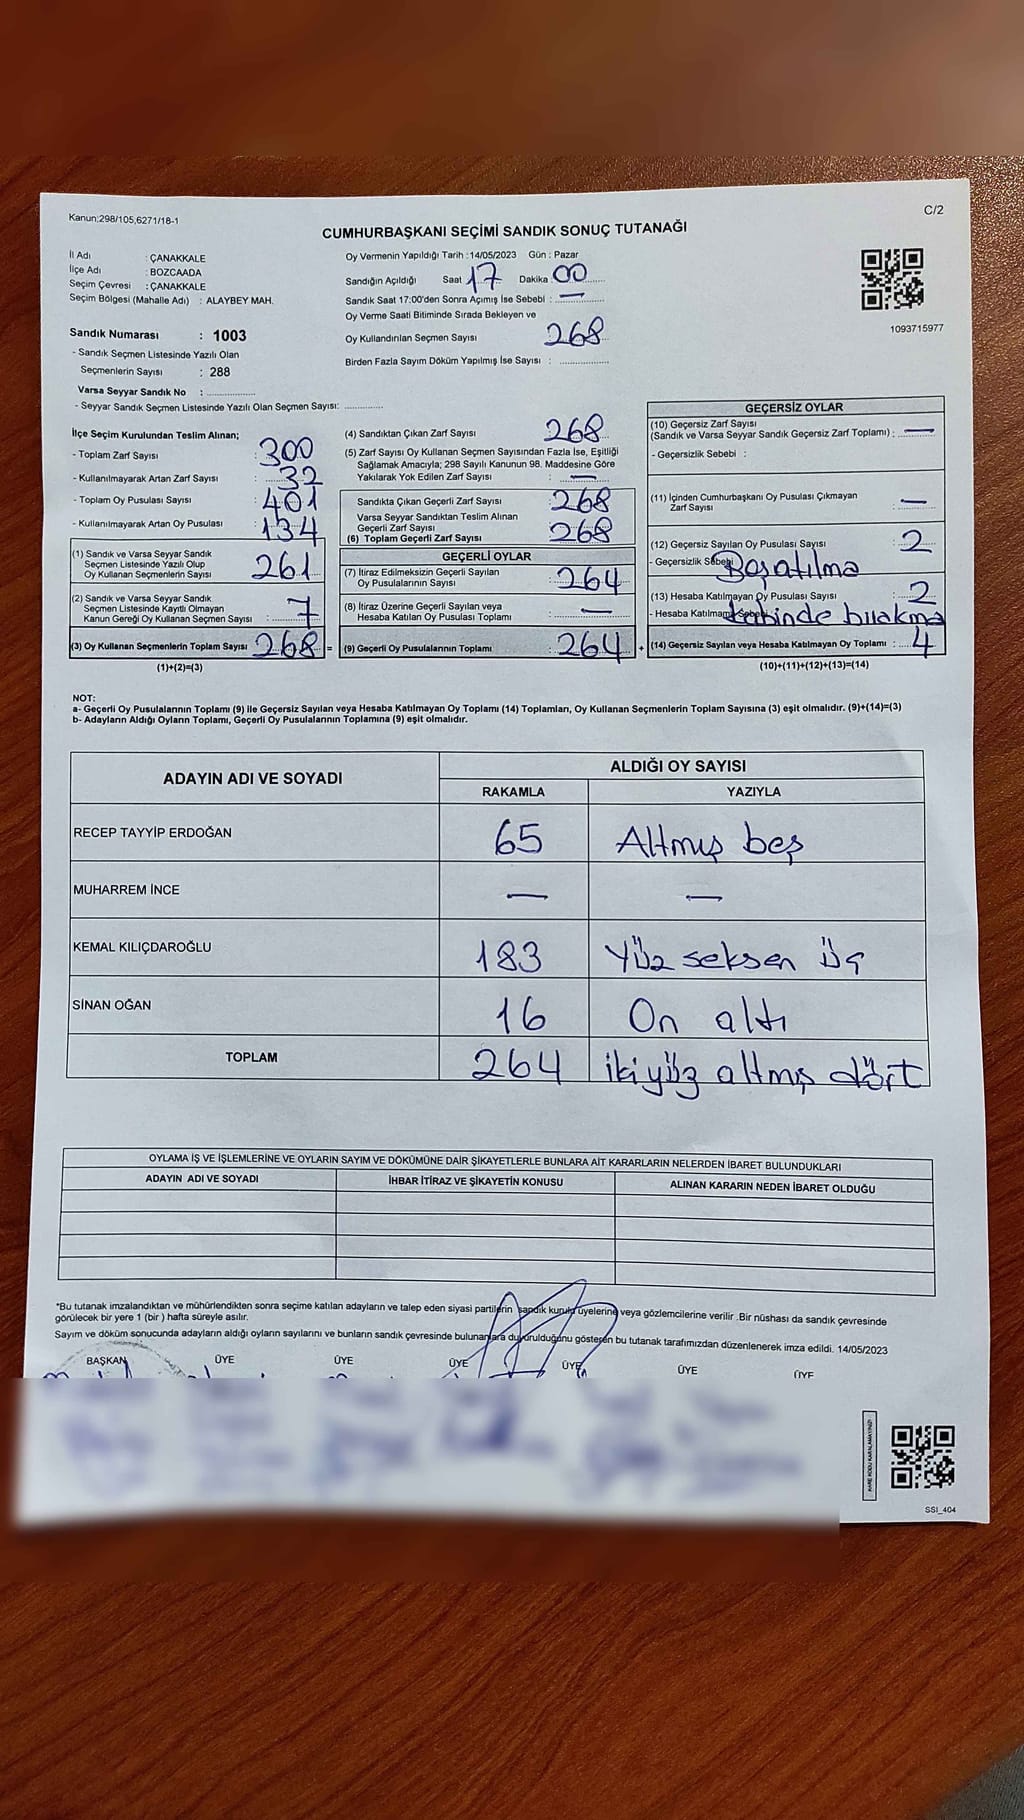 Kanun;298/105,6271/18-1
C/2
CUMHURBAŞKANI SEÇİMİ SANDIK SONUÇ TUTANAĞI
İl Adı : ÇANAKKALE
İlçe Adı : BOZCAADA
Seçim Çevresi : ÇANAKKALE
Seçim Bölgesi (Mahalle Adı) : ALAYBEY MAH.
Sandık Numarası : 1003
- Sandık Seçmen Listesinde Yazılı Olan
Seçmenlerin Sayısı : 288
Varsa Seyyar Sandık No : ..............
- Seyyar Sandık Seçmen Listesinde Yazılı Olan Seçmen Sayısı: ............
Oy Vermenin Yapıldığı Tarih :14/05/2023 Gün : Pazar
Sandığın Açıldığı Saat 17 Dakika 00
Sandık Saat 17:00'den Sonra Açımış İse Sebebi : —
Oy Verme Saati Bitiminde Sırada Bekleyen ve
Oy Kullandırılan Seçmen Sayısı 268
Birden Fazla Sayım Döküm Yapılmış İse Sayısı : ..............
1093715977
İlçe Seçim Kurulundan Teslim Alınan;
- Toplam Zarf Sayısı : 300
- Kullanılmayarak Artan Zarf Sayısı : 32
- Toplam Oy Pusulası Sayısı : 401
- Kullanılmayarak Artan Oy Pusulası : 134
(1) Sandık ve Varsa Seyyar Sandık
Seçmen Listesinde Yazılı Olup
Oy Kullanan Seçmenlerin Sayısı 261
(2) Sandık ve Varsa Seyyar Sandık
Seçmen Listesinde Kayıtlı Olmayan
Kanun Gereği Oy Kullanan Seçmen Sayısı : 7
(3) Oy Kullanan Seçmenlerin Toplam Sayısı 268 =
(1)+(2)=(3)
(4) Sandıktan Çıkan Zarf Sayısı 268
(5) Zarf Sayısı Oy Kullanan Seçmen Sayısından Fazla İse, Eşitliği
Sağlamak Amacıyla; 298 Sayılı Kanunun 98. Maddesine Göre
Yakılarak Yok Edilen Zarf Sayısı : —
Sandıkta Çıkan Geçerli Zarf Sayısı 268
Varsa Seyyar Sandıktan Teslim Alınan
Geçerli Zarf Sayısı
(6) Toplam Geçerli Zarf Sayısı 268
GEÇERLİ OYLAR
(7) İtiraz Edilmeksizin Geçerli Sayılan
Oy Pusulalarının Sayısı : 264
(8) İtiraz Üzerine Geçerli Sayılan veya
Hesaba Katılan Oy Pusulası Toplamı : —
(9) Geçerli Oy Pusulalarının Toplamı : 264 +
GEÇERSİZ OYLAR
(10) Geçersiz Zarf Sayısı
(Sandık ve Varsa Seyyar Sandık Geçersiz Zarf Toplamı) : —
- Geçersizlik Sebebi :
(11) İçinden Cumhurbaşkanı Oy Pusulası Çıkmayan
Zarf Sayısı : —
(12) Geçersiz Sayılan Oy Pusulası Sayısı : 2
- Geçersizlik Sebebi Boş atılma
(13) Hesaba Katılmayan Oy Pusulası Sayısı : 2
- Hesaba Katılmama Sebebi kabinde bırakma
(14) Geçersiz Sayılan veya Hesaba Katılmayan Oy Toplamı : 4
(10)+(11)+(12)+(13)=(14)
NOT:
a- Geçerli Oy Pusulalarının Toplamı (9) ile Geçersiz Sayılan veya Hesaba Katılmayan Oy Toplamı (14) Toplamları, Oy Kullanan Seçmenlerin Toplam Sayısına (3) eşit olmalıdır. (9)+(14)=(3)
b- Adayların Aldığı Oyların Toplamı, Geçerli Oy Pusulalarının Toplamına (9) eşit olmalıdır.
ADAYIN ADI VE SOYADI
ALDIĞI OY SAYISI
RAKAMLA YAZIYLA
RECEP TAYYİP ERDOĞAN 65 Altmış beş
MUHARREM İNCE — —
KEMAL KILIÇDAROĞLU 183 Yüz seksen üç
SİNAN OĞAN 16 On altı
TOPLAM 264 ikiyüz altmış dört
OYLAMA İŞ VE İŞLEMLERİNE VE OYLARIN SAYIM VE DÖKÜMÜNE DAİR ŞİKAYETLERLE BUNLARA AİT KARARLARIN NELERDEN İBARET BULUNDUKLARI
ADAYIN ADI VE SOYADI İHBAR İTİRAZ VE ŞİKAYETİN KONUSU ALINAN KARARIN NEDEN İBARET OLDUĞU
*Bu tutanak imzalandıktan ve mühürlendikten sonra seçime katılan adayların ve talep eden siyasi partilerin sandık kurulu üyelerine veya gözlemcilerine verilir .Bir nüshası da sandık çevresinde
görülecek bir yere 1 (bir ) hafta süreyle asılır.
Sayım ve döküm sonucunda adayların aldığı oyların sayılarını ve bunların sandık çevresinde bulunanlara duyurulduğunu gösteren bu tutanak tarafımızdan düzenlenerek imza edildi. 14/05/2023
BAŞKAN ÜYE ÜYE ÜYE ÜYE ÜYE ÜYE
SSI_404